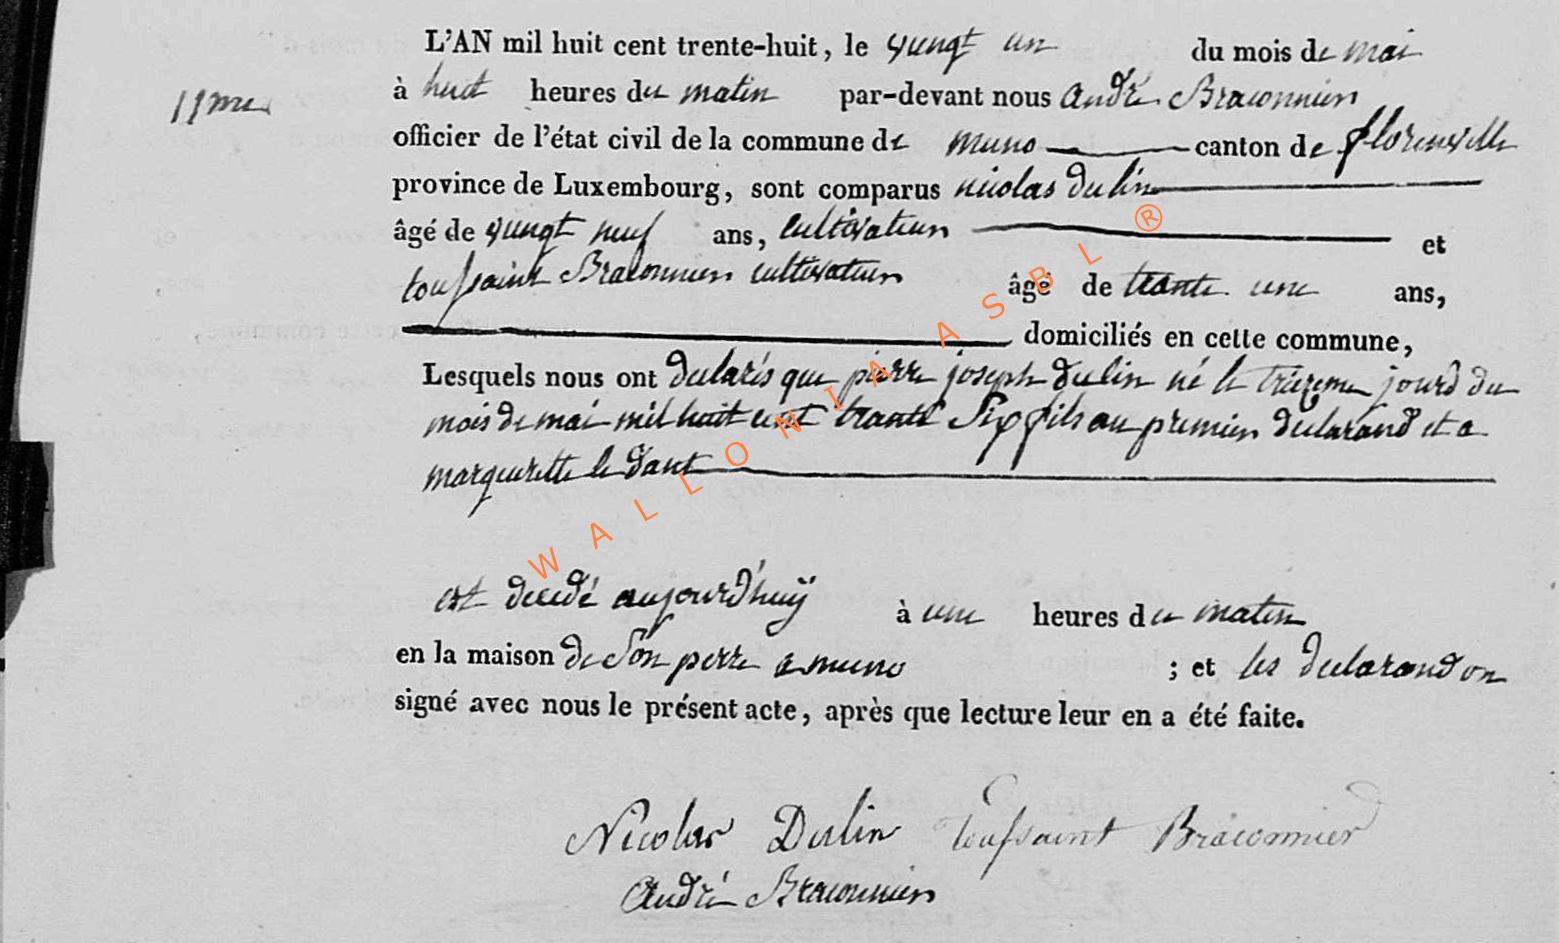 L'AN mil huit cent trente-huit, le vungt un du mois de mai
11me à huit heures du matin par-devant nous andré Braconnier
officier de l'état civil de la commune de muno canton de florenville
province de Luxembourg, sont comparus nicolas dulin
âgé de vungt neuf ans, cultivateur et
toussaint Braconnier cultivateur âgé de trante une ans,
domiciliés en cette commune,
Lesquels nous ont declarés que pierre joseph dulin né le triezeme jourd du
mois de mai mil huit cent trante six fils au premier declarand et a
marguerette le dant
est decedé aujourd'huÿ à une heures du matin
en la maison de son perre a muno ; et les declarand on
signé avec nous le présent acte, après que lecture leur en a été faite.
Nicolas Dulin Toussaint Braconnier
andré Braconnier
WALLONIA ASBL ®